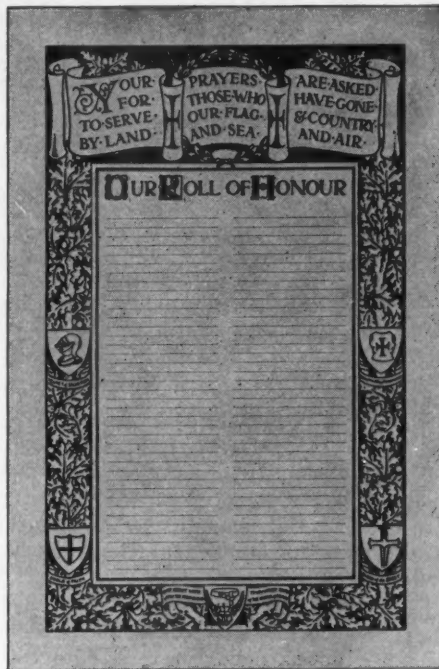 YOUR · PRAYERS · ARE · ASKED ·
FOR · THOSE · WHO HAVE · GONE ·
TO · SERVE · OUR · FLAG · & · COUNTRY
BY · LAND · AND · SEA · AND · AIR ·
OUR ROLL OF HONOUR